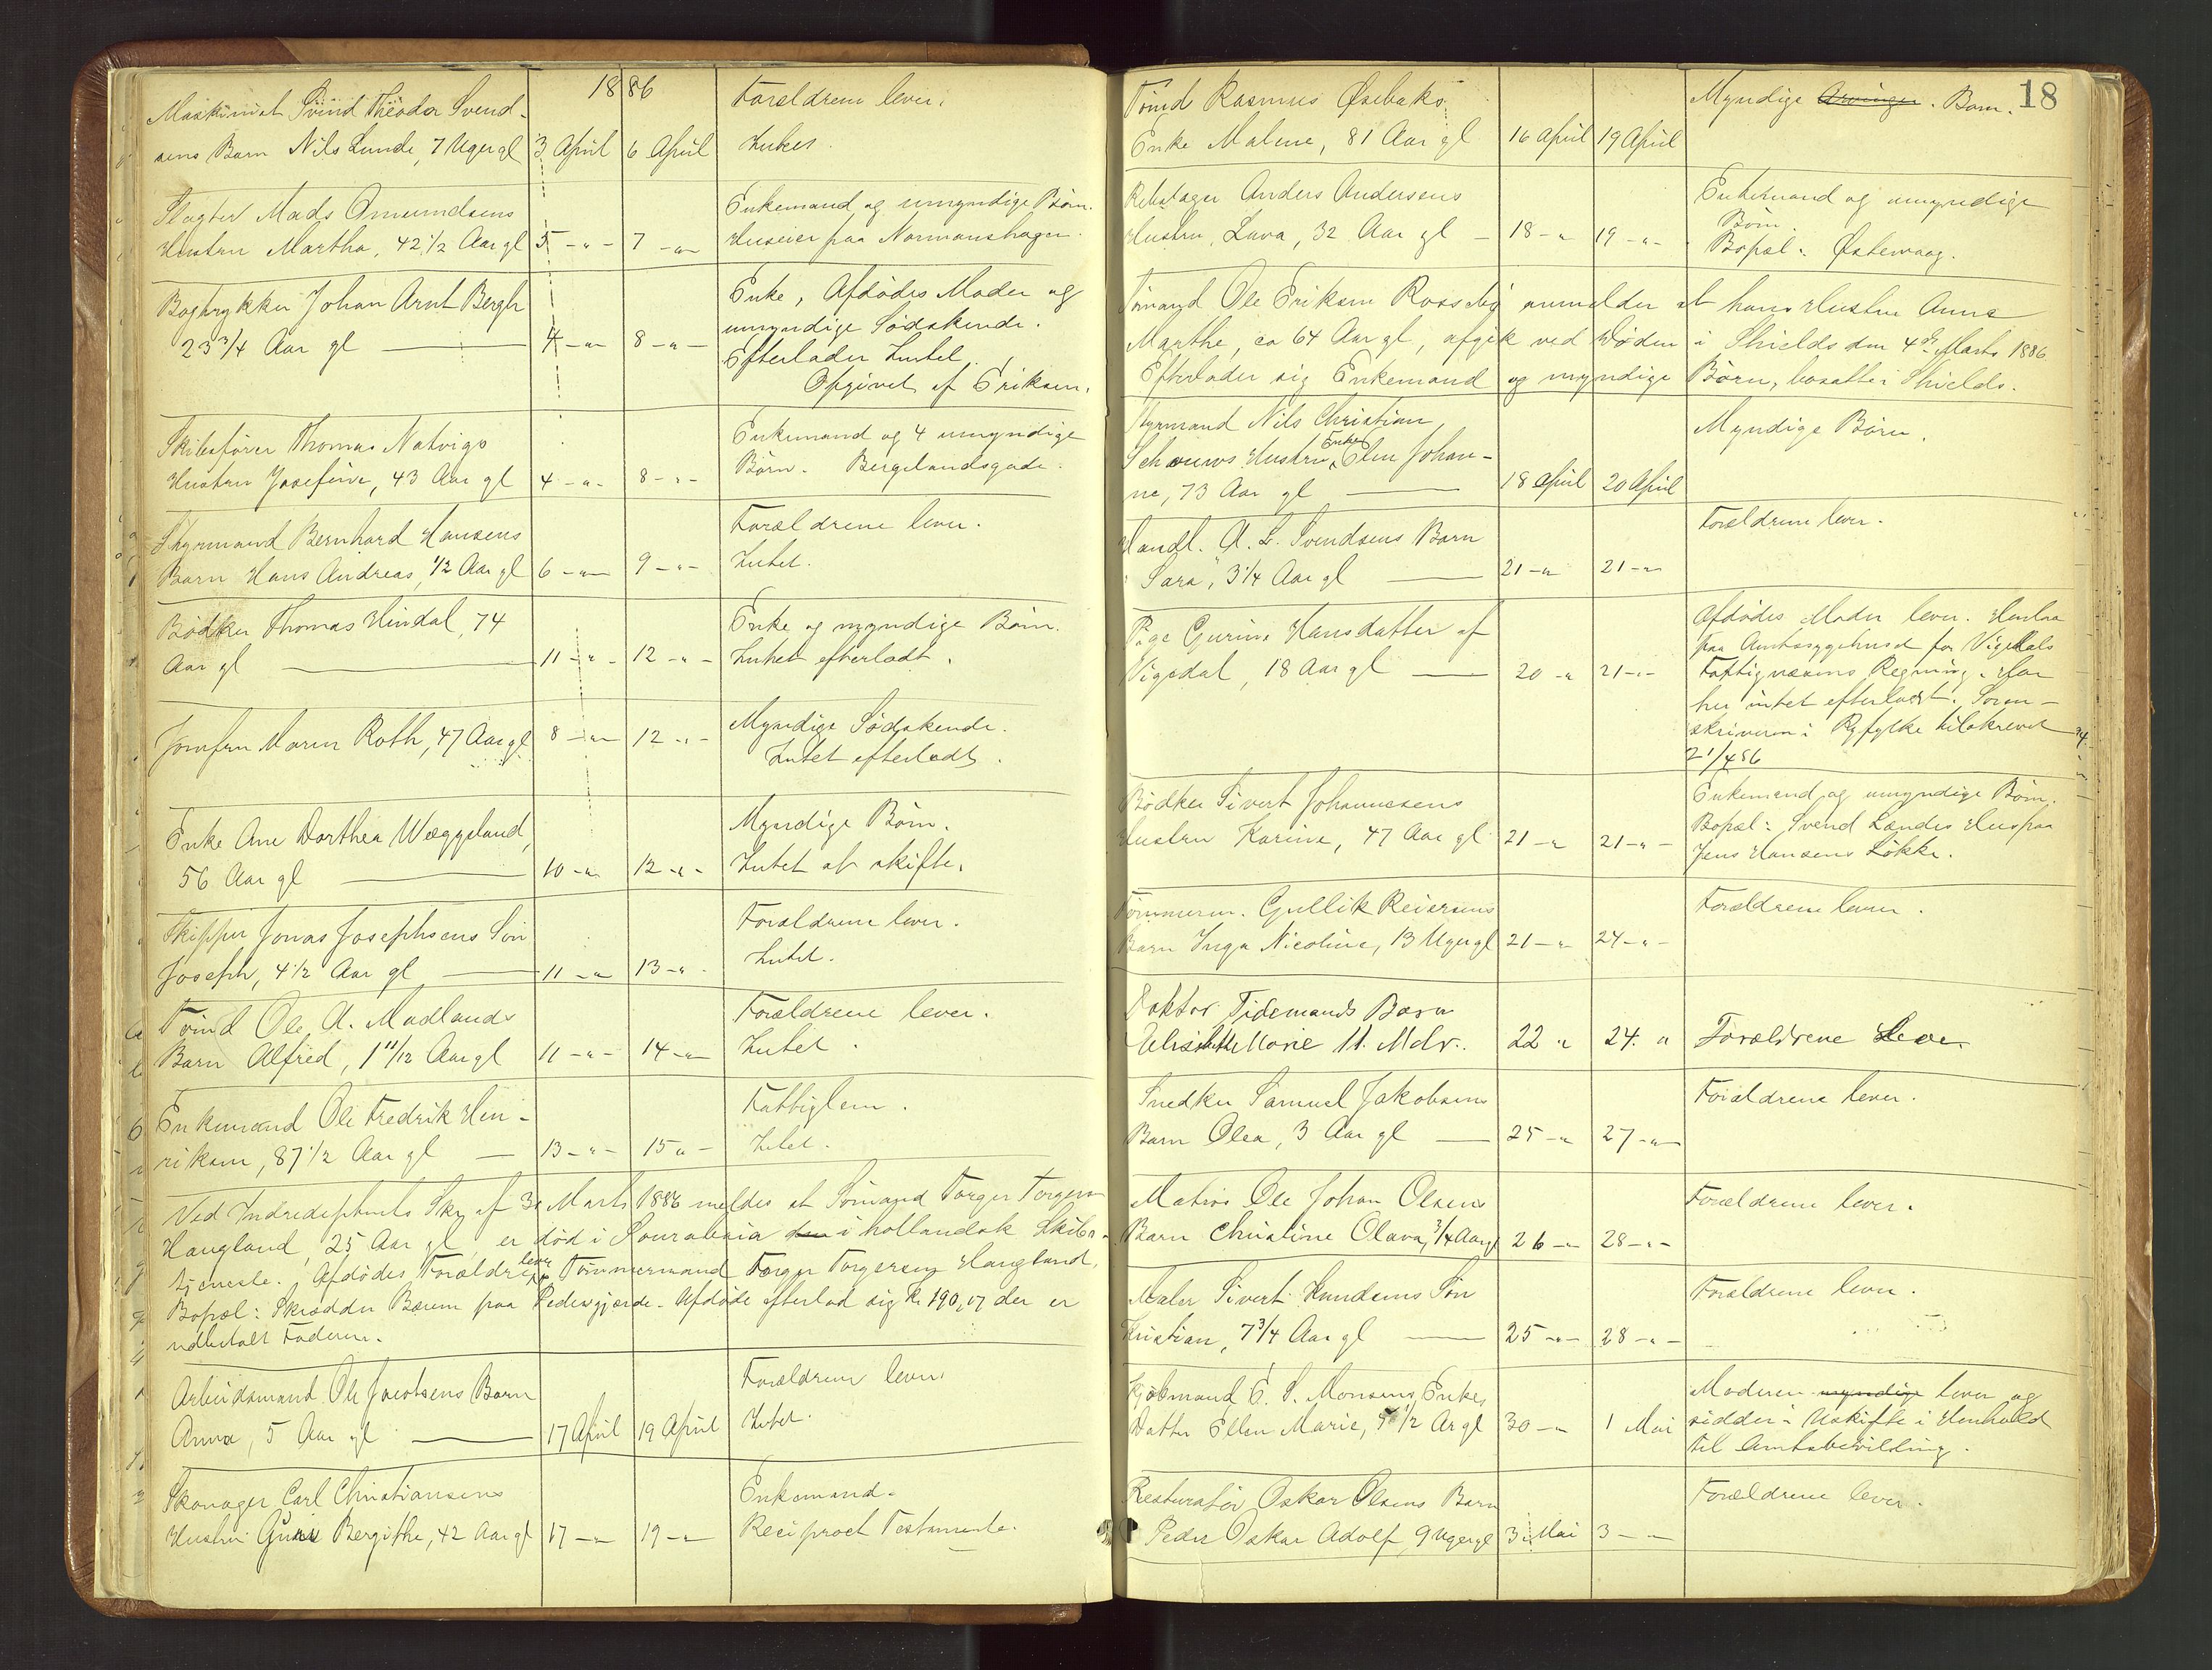 1886
Maskinist Svend Theodor Svend-
sens Barn Nils Lunde, 7 Uger gl 3 April 6 April
Forældrene lever.
Intet.
Slagter Mads Omundsens
Hustru Martha, 42 1/2 Aar gl 5 -"- 7 -"-
Enkemand og umyndige Børn.
Huseier paa Normanshagen.
Bogtrykker Johan Arnt Bergh
23 3/4 Aar gl 4 -"- 8 -"-
Enke, Afdødes Moder og
umyndige Södskende.
Efterlader Intet.
Opgivet af Eriksen.
Skibsfører Thomas Natvigs
Hustru Josefine, 43 Aar gl 4 -"- 8 -"-
Enkemand og 4 umyndige
Börn. Bergelandsgade.
Styrmand Bernhard Hansens
Barn Hans Andreas, 1/2 Aar gl 6 -"- 9 -"-
Forældrene lever.
Intet.
Bødker Thomas Hindal, 74
Aar gl 11 -"- 12 -"-
Enke og myndige Börn.
Intet efterladt.
Jomfru Maren Roth, 47 Aar gl 8 -"- 12 -"-
Myndige Södskende.
Intet efterladt.
Enke Ane Dorthea Wæggeland,
56 Aar gl 10 -"- 12 -"-
Myndige Börn.
Intet at skifte.
Skipper Jonas Josephsens Sön
Joseph, 4 1/2 Aar gl 11 -"- 13 -"-
Forældrene lever.
Intet.
Tømd Ole A. Madlands
Barn Alfred, 1 11/12 Aar gl 11 -"- 14 -"-
Forældrene lever.
Intet.
Enkemand Ole Fredrik Hen-
riksen, 87 1/2 Aar gl 13 -"- 15 "-
Fattiglem.
Intet.
Ved Indredeptmts Skr af 30 Marts 1886 meldes at Sömand Torger Torgersen
Haugland, 25 Aar gl, er död i Sourabaia i hollandsk Skibs-
tjeneste. Afdødes Forældre lever Tömmermand Torger Torgersen Haugland,
Bopæl: Skrædder Bærem paa Pedersgjerde. Afdøde efterlod sig Kr 190,17 der er
udbetalt Faderen.
Arbeidsmand Ole Jacobsens Barn
Anna, 5 Aar gl 17 April 19 April
Forældrene lever.
Intet.
Skomager Carl Christiansens
Hustru Bergithe, 42 Aar gl 17 -"- 19 -"-
Enkemand.
Reciproct Testamente.
18
Tömd Rasmus Øsebaks
Enke Malene, 81 Aar gl 16 April 19 April
Myndige Arvinger. Børn.
Rebslager Anders Andersens
Hustru, Lava, 32 Aar gl 18 -"- 19 -"-
Enkemand og umyndige
Börn.
Bopæl: Østervaag.
Sömand Ole Eriksen Rossebö anmelder at hans Hustru Anna
Marthe, ca 64 Aar gl, afgik ved Döden i Shields den 4de Marts 1886.
Efterlader sig Enkemand og myndige Børn, bosatte i Shields.
Styrmand Nils Christian
Schouws Hustru Enke Elen Johan-
ne, 73 Aar gl 18 April 20 April
Myndige Börn.
Handl. A. L. Svendsens Barn
"Sara", 3 1/4 Aar gl 21 -"- 21 -"-
Forældrene lever.
Pige Gurine Hansdatter af
Vigedal, 18 Aar gl 20 -" 21 -"-
Afdødes Moder lever. Henlaa
paa Amtssygehuset for Vigedals
Fattigvæsens Regning. Har
her intet efterladt. Soren-
skriveren i Ryfylke tilskrevet
21/4 86
Bødker Sivert Johannesens
Hustru Karine, 47 Aar gl 21 -" 21 -"-
Enkemand og umyndige Börn.
Bopæl: Svend Landes Hus paa
Jens Hansens Løkke.
Tömmerm. Gullik Reiersens
Barn Inga Nicoline, 13 Uger gl 21 -" 24 -"-
Forældrene lever.
Doktor Tidemands Barn
Elisabeth Marie 11 Mdr. 22 " 24. "
Forældrene Lever.
Snedker Samuel Jakobsens
Barn Olea, 3 Aar gl 25 -" 27 -"-
Forældrene lever.
Matros Ole Johan Olsens
Barn Christine Olava, 3/4 Aar gl 26 -"- 28 -"-
Forældrene lever.
Maler Sivert Knudsens Sön
Kristian, 7 3/4 Aar gl 25 -"- 28 -"-
Forældrene lever.
Kjøbmand E. S. Monsens Enkes
Datter Ellen Marie, 5 1/2 Ar gl 30 -"- 1 Mai
Moderen myndige lever og
sidder i Uskifte i Henhold
til Amtsbevilling.
Restauratör Oskar Olsens Barn
Peder Oskar Adolf, 9 Uger gl 3 Mai 3 -"-
Forældrene lever.